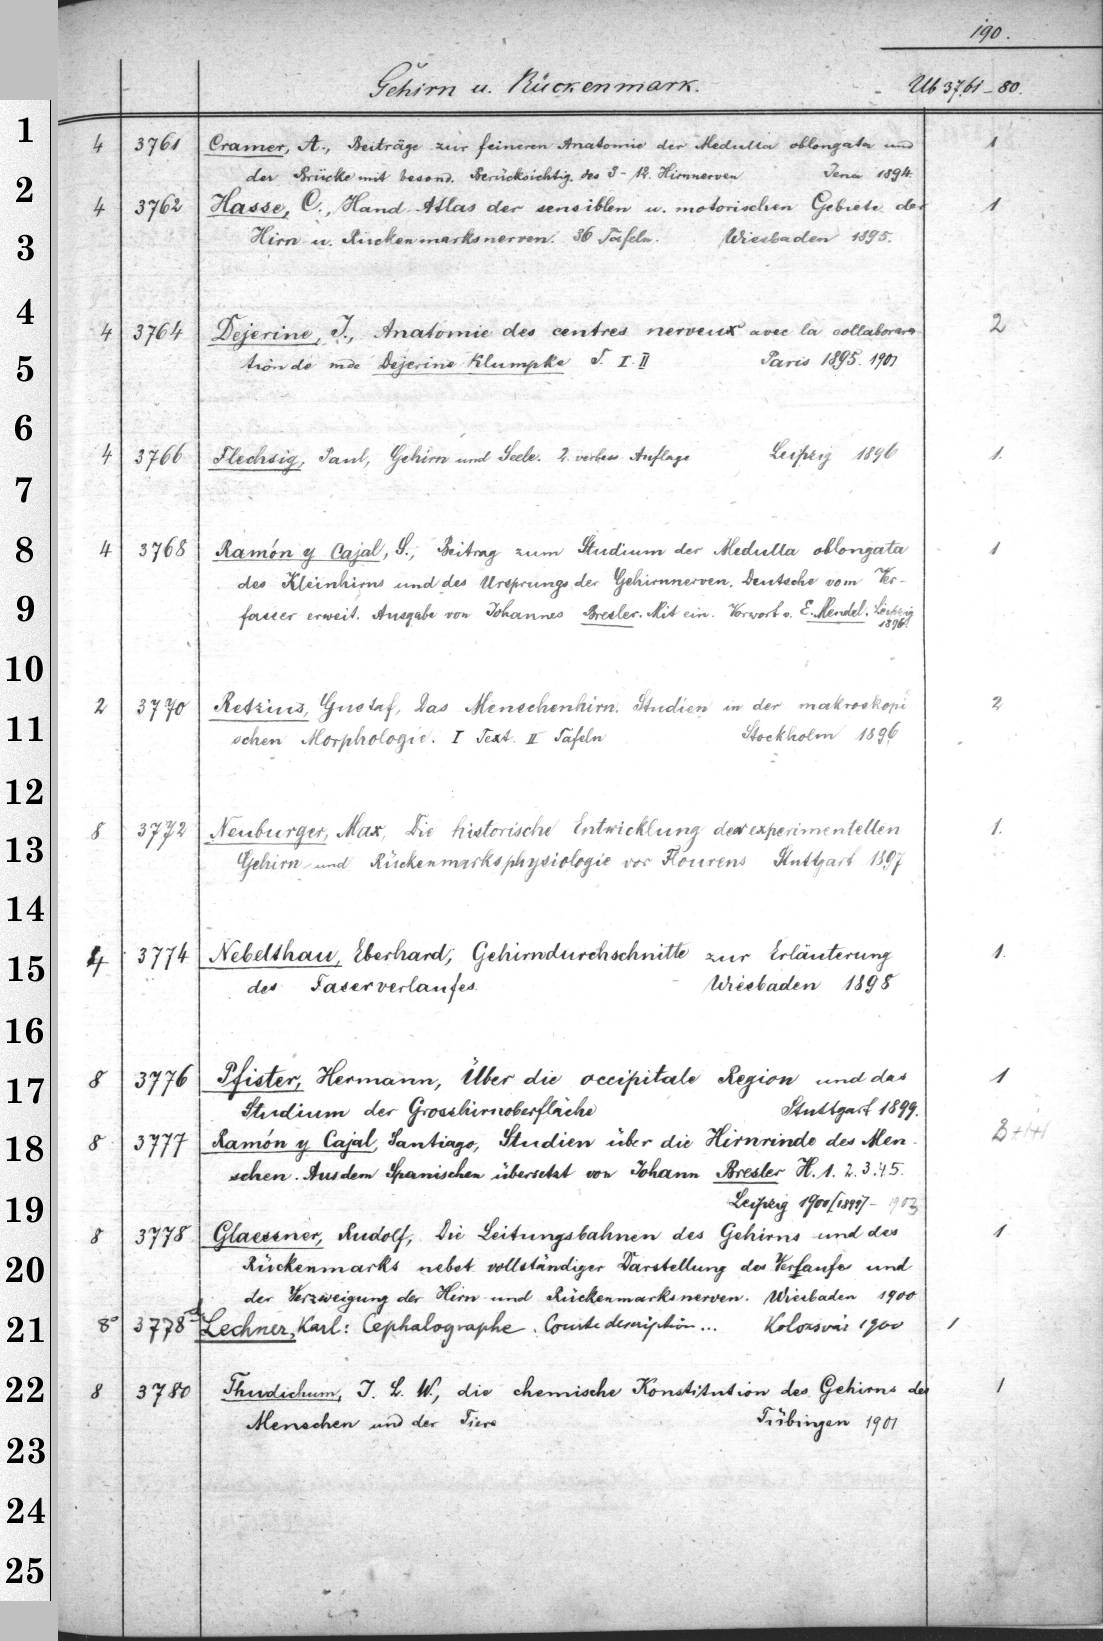 190.
Gehirn u. Rückenmark. Ub 3761-80.
1
4 3761 Cramer, A., Beiträge zur feineren Anatomie der Medulla oblongata und 1
2
der Brücke mit besond. Berücksichtig. des 3-12. Hirnnerven Jena 1894.
4 3762 Hasse, C., Hand-Atlas der sensiblen u. motorischen Gebiete der 1
3
Hirn u. Rückenmarksnerven. 36 Tafeln. Wiesbaden 1895.
4
4 3764 Dejerine, J., Anatomie des centres nerveux avec la collabora- 2
5
tion de mde Dejerine Klumpke T. I. II Paris 1895. 1901
6
4 3766 Flechsig, Paul, Gehirn und Seele. 2. verbess. Auflage Leipzig 1896 1.
7
8
4 3768 Ramón y Cajal, S., Beitrag zum Studium der Medulla oblongata 1
des Kleinhirns und des Ursprungs der Gehirnnerven. Deutsche vom Ver-
9
fasser erweit. Ausgabe von Johannes Bresler. Mit ein. Vorwort v. E. Mendel. Leipzig
1896.
10
2 3770 Retzius, Gustaf, Das Menschenhirn. Studien in der makroskopi 2
11
schen Morphologie. I Text. II Tafeln Stockholm 1896
12
8 3772 Neuburger, Max, Die historische Entwicklung der experimentellen 1.
13
Gehirn und Rückenmarksphysiologie vor Flourens Stuttgart 1897
14
4 3774 Nebelthau, Eberhard, Gehirndurchschnitte zur Erläuterung 1.
15
des Faserverlaufes. Wiesbaden 1898
16
8 3776 Pfister, Hermann, Über die occipitale Region und das 1
17
Studium der Grosshirnoberfläche Stuttgart 1899.
8 3777 Ramón y Cajal, Santiago, Studien über die Hirnrinde des Men- 3+1+1
18
schen. Aus dem Spanischen übersetzt von Johann Bresler H. 1. 2. 3. 4 5.
19
Leipzig 1900/[1899]-1903
8 3778 Glaessner, Rudolf, Die Leitungsbahnen des Gehirns und des 1
20
Rückenmarks nebst vollständiger Darstellung des Verlaufes und
der Verzweigung der Hirn- und Rückenmarksnerven. Wiesbaden 1900
21
8° 3778d Lechner, Karl: Cephalographe. Courte description... Kolozsvár 1900 1
22
8 3780 Thudichum, J. L. W., die chemische Konstitution des Gehirns des 1
Menschen und der Tiere Tübingen 1901
23
24
25